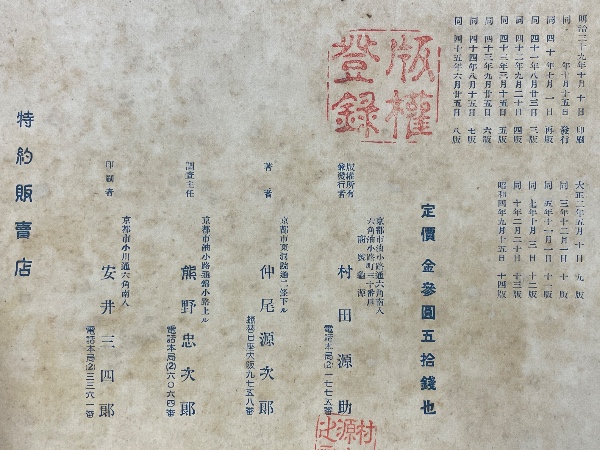 明治三十九年十月十日 印刷
同 年十月十五日 發行
同 四十年十月一日 再版
同 四十一年八月廿三日 三版
同 四十二年九月二十日 四版
同 四十三年三月十五日 五版
同 四十三年九月廿五日 六版
同 四十四年八月十五日 七版
同 四十五年六月廿五日 八版
大正二年五月十日 九版
同 三年十二月一日 十版
同 五年十一月一日 十一版
同 七年十月三日 十二版
同 十年二月二十日 十三版
昭和四年九月十五日 十四版
版權
登録
定價 金參圓五拾錢也
京都市油小路通六角南入
六角油小路町三十番戸
版權所有
兼發行者
村田源助
電話本局(2)一七七五番
京都市東洞院通二條下ル
著者
仲尾源次郎
振替口座大阪九七五八番
調査主任
熊野忠次郎
電話本局(2)六〇六四番
京都市小川通六角南入
印刷者
安井三四郎
電話本局(2)三三六一番
特約販賣店
村
源